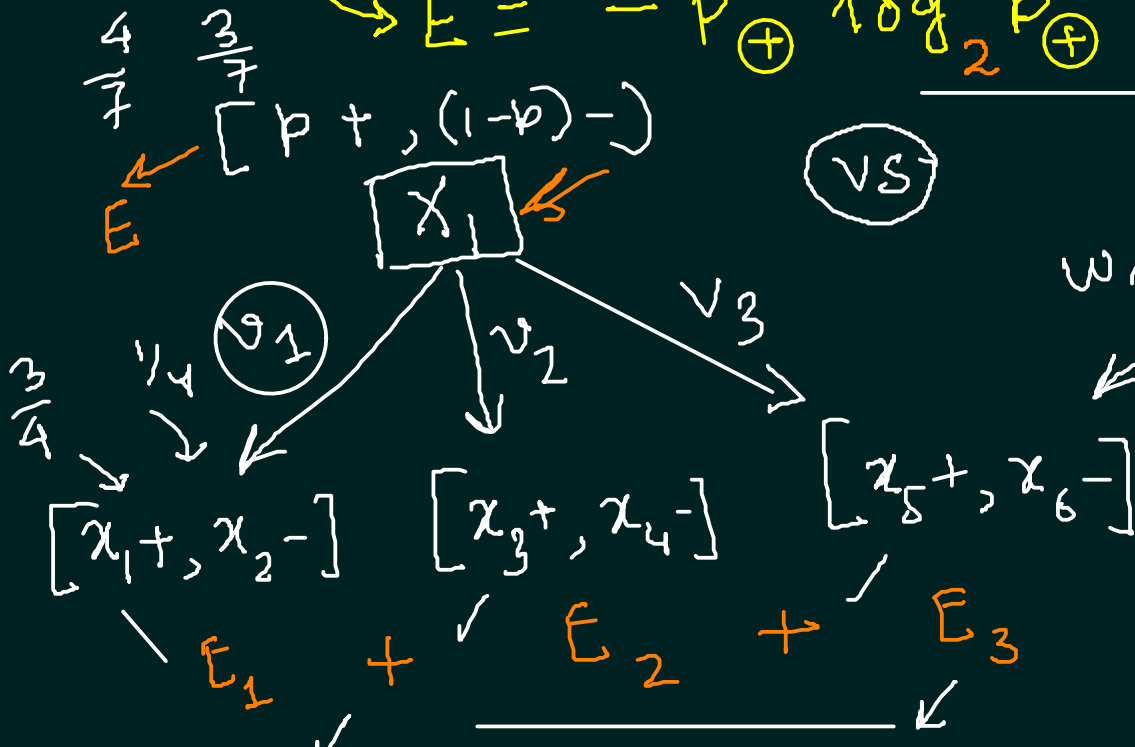 E = - P⊕ log₂ P⊕
4/7 3/7
[p+, (1-p)-]
E
X₁
VS
v₁ v₂ v₃
3/4 1/4
[x₁+, x₂-] [x₃+, x₄-] [x₅+, x₆-]
E₁ + E₂ + E₃